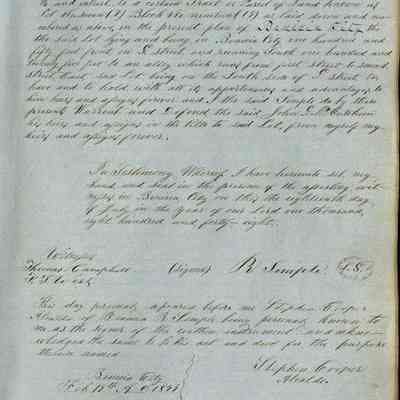 to and interest to a certain Tract or Parcel of Land known as
Lot Number (7) Block No nineteen (19) as laid down and num
bered as above, in the present plan of Benicia City the
the said Lot lying and being in Benicia City one hundred and
fifty feet front on I Street and running South one hundred and
twenty five feet to an alley which runs from first Street to second
Street east said Lot being on the South side of I Street to
have and to hold with all its appertenances and advantages to
him heirs and assigns forever and I the said Semple do by these
presents Warrant and Defend the said John E. McCutcheon
his heirs and assigns in the title to said Lot, from myself my
heirs and assigns forever.
In Testimony Whereof I have hereunto set my
hand and seal in the presence of the attesting wit
nesses in Benicia City on this the eighteenth day
of July in the year of our Lord one thousand
eight hundred and forty-eight.
Witness
Thomas Campbell (Signed) R Semple L.S.
This day personally appeared before me Stephen Cooper
Alcalde of Benicia R. Semple being personally known to
me as the signer of the within instrument and acknow
ledged the same to be his act and deed for the purpose
therein named
Stephen Cooper
Benicia City Alcalde
Feb